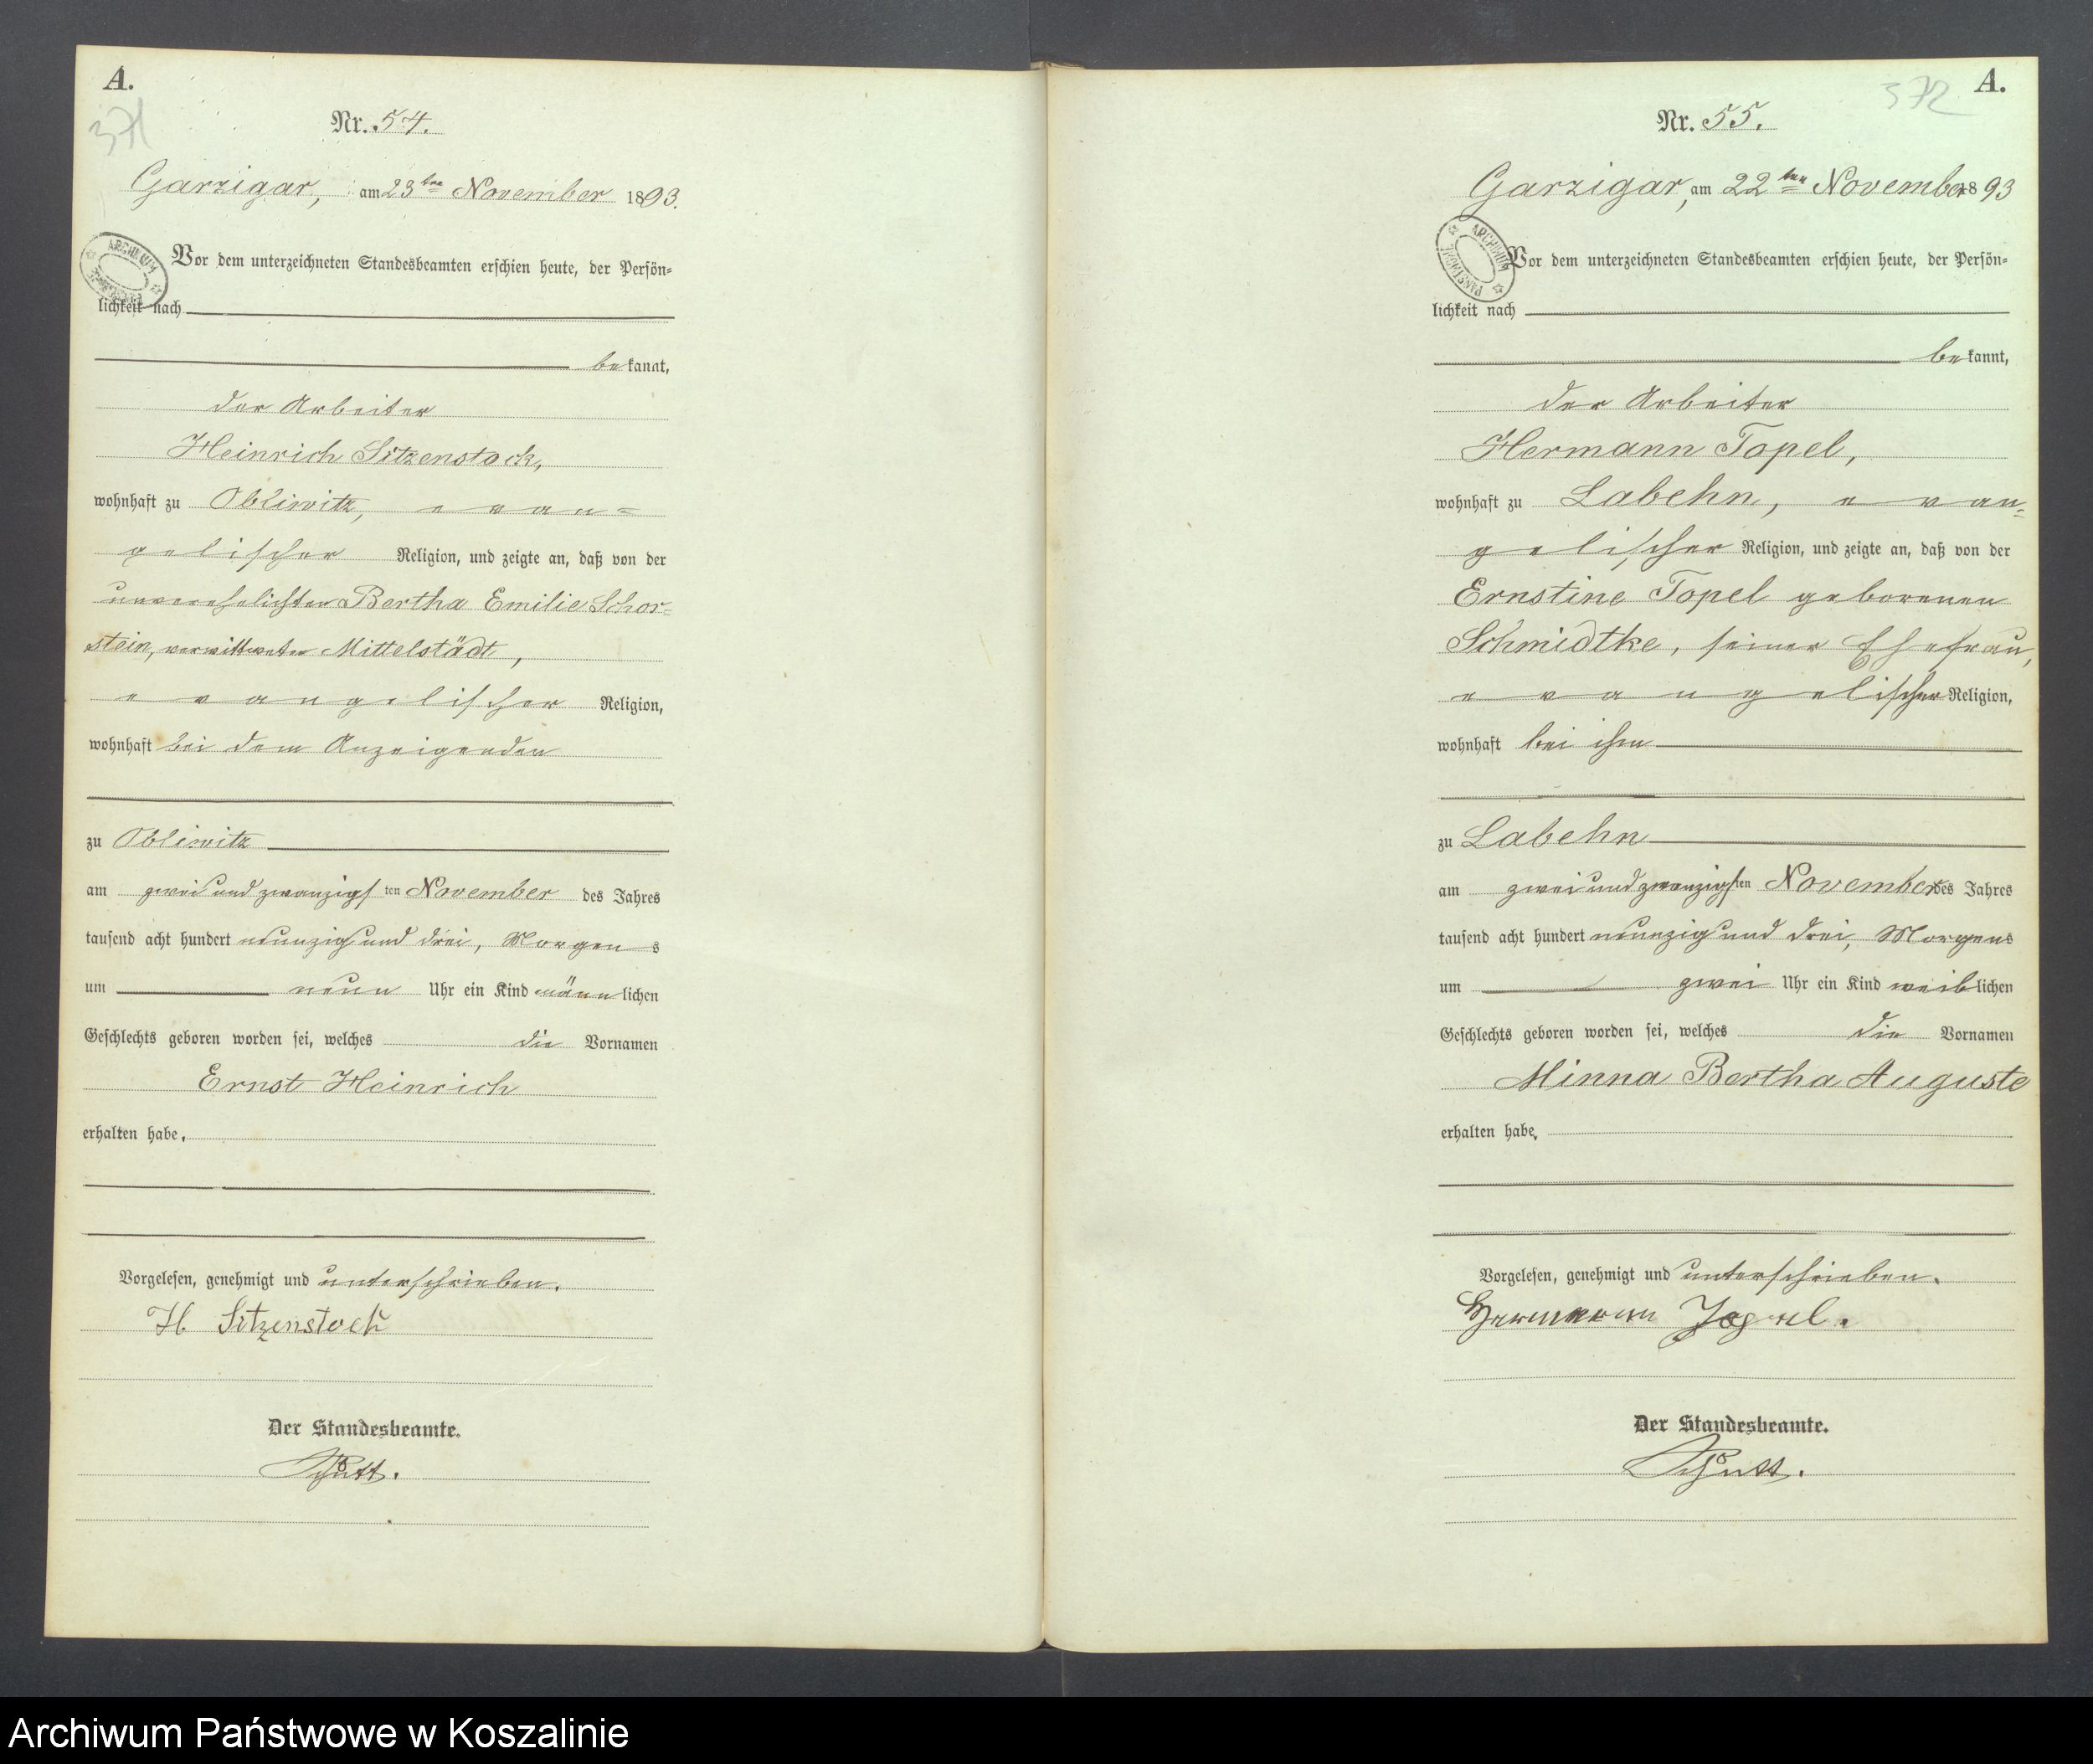 A.
371
Nr. 54.
Garzigar, am 23ten November 1893.
Vor dem unterzeichneten Standesbeamten erschien heute, der Persön-
lichkeit nach
bekannt,
der Arbeiter
Heinrich Sitzenstock,
wohnhaft zu Obliwitz, evan-
gelischer Religion, und zeigte an, daß von der
unverehelichten Bertha Emilie Schor-
stein, verwittweten Mittelstädt,
evangelischer Religion,
wohnhaft bei dem Anzeigenden
zu Obliwitz
am zwei und zwanzigsten November des Jahres
tausend acht hundert neunzig und drei, Morgens
um neun Uhr ein Kind männlichen
Geschlechts geboren worden sei, welches die Vornamen
Ernst Heinrich
erhalten habe.
Vorgelesen, genehmigt und unterschrieben.
H. Sitzenstock
Der Standesbeamte.
A.
372
Nr. 55.
Garzigar, am 22ten November 1893
Vor dem unterzeichneten Standesbeamten erschien heute, der Persön-
lichkeit nach
bekannt,
der Arbeiter
Hermann Topel,
wohnhaft zu Labehn, evan-
gelischer Religion, und zeigte an, daß von der
Ernstine Topel geborenen
Schmidtke, seiner Ehefrau,
evangelischer Religion,
wohnhaft bei ihm
zu Labehn
am zwei und zwanzigsten November des Jahres
tausend acht hundert neunzig und drei, Morgens
um zwei Uhr ein Kind weiblichen
Geschlechts geboren worden sei, welches die Vornamen
Minna Bertha Auguste
erhalten habe.
Vorgelesen, genehmigt und unterschrieben.
Hermann Topel.
Der Standesbeamte.
Archiwum Państwowe w Koszalinie